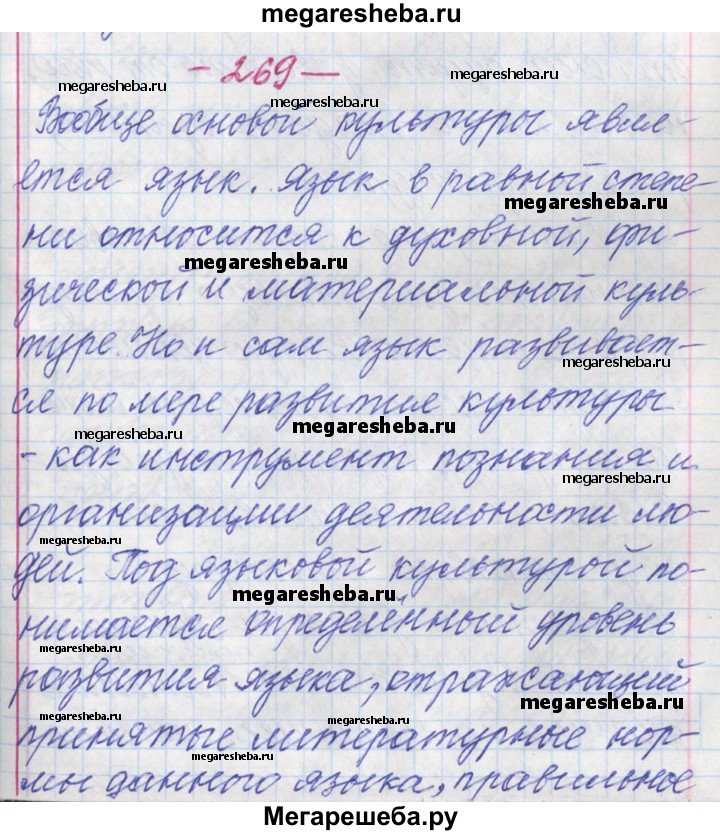 megaresheba.ru
- 269 -
megaresheba.ru
megaresheba.ru
Вообще основой культуры явля-
ется язык. Язык в равной степе-
megaresheba.ru
ни относится к духовной, фи-
megaresheba.ru
зической и материальной куль-
туре. Но и сам язык развивает-
megaresheba.ru
ся по мере развития культуры
megaresheba.ru
megaresheba.ru
- как инструмент познания и
megaresheba.ru
организации деятельности лю-
megaresheba.ru
дей. Под языковой культурой по-
megaresheba.ru
нимается определённый уровень
megaresheba.ru
развития языка, отражающий
megaresheba.ru
megaresheba.ru
megaresheba.ru
принятые литературные нор-
megaresheba.ru
мы данного языка, правильное
Мегарешеба.ру